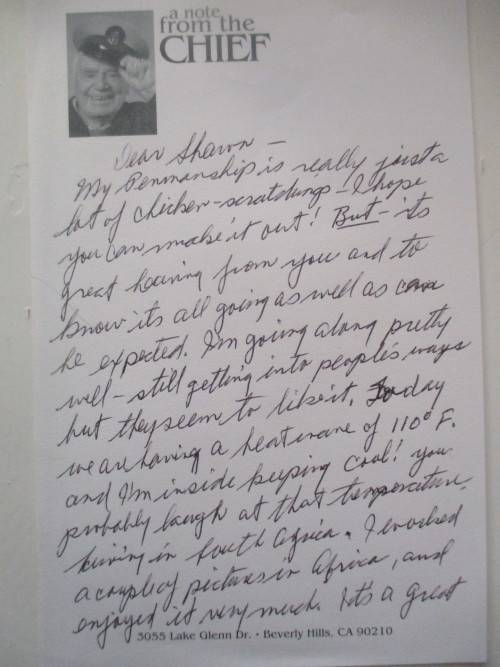 a note
from the
CHIEF
Dear Shawn —
My Penmanship is really just a
lot of chicken-scratchings - I hope
you can make it out! But - its
great hearing from you and to
know its all going as well as can
be expected. I'm going along pretty
well - still getting into people's ways
but they seem to like it. Today
we are having a heatwave of 110° F.
and I'm inside keeping cool! you
probably laugh at that temperature
living in South Africa. I worked
a couple of pictures in Africa, and
enjoyed it very much. It's a great
3055 Lake Glenn Dr. • Beverly Hills, CA 90210